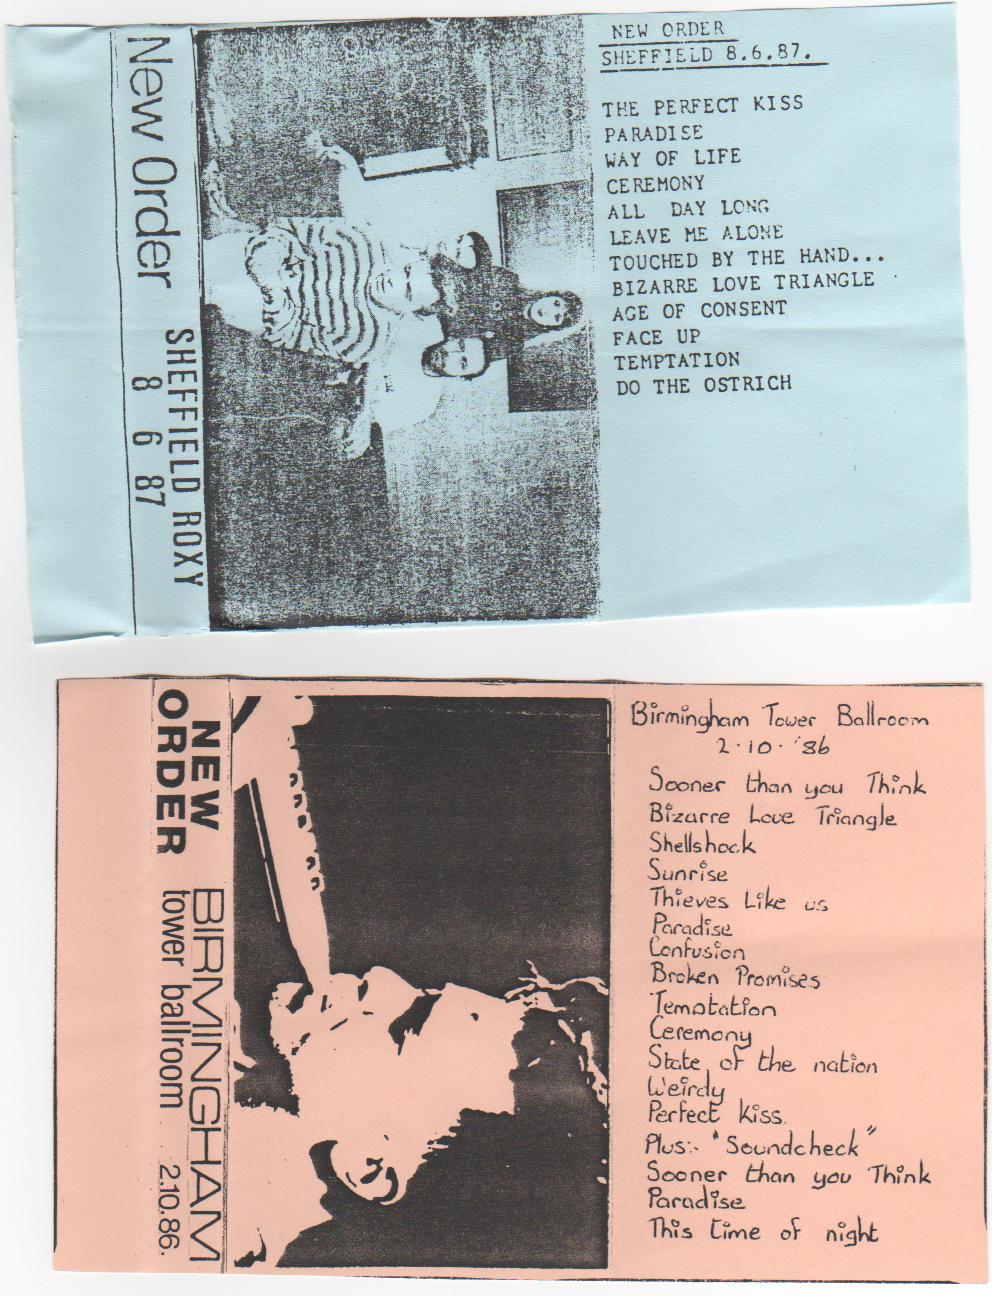 New Order
SHEFFIELD ROXY
8 6 87
NEW ORDER
SHEFFIELD 8.6.87.
THE PERFECT KISS
PARADISE
WAY OF LIFE
CEREMONY
ALL DAY LONG
LEAVE ME ALONE
TOUCHED BY THE HAND...
BIZARRE LOVE TRIANGLE
AGE OF CONSENT
FACE UP
TEMPTATION
DO THE OSTRICH
NEW
ORDER
BIRMINGHAM
tower ballroom 2.10.86.
Birmingham Tower Ballroom
2·10·'86
Sooner than you Think
Bizarre Love Triangle
Shellshock
Sunrise
Thieves Like us
Paradise
Confusion
Broken Promises
Temptation
Ceremony
State of the nation
Weirdy
Perfect Kiss.
Plus:- "Soundcheck"
Sooner than you Think
Paradise
This time of night